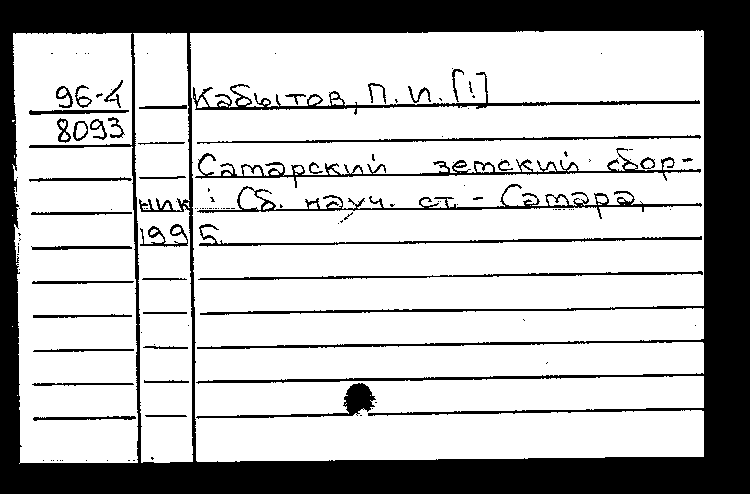 96-4 Кабытов, П. И. [!]
8093
Самарский земский сбор-
ник : Сб. науч. ст. - Самара,
1995.